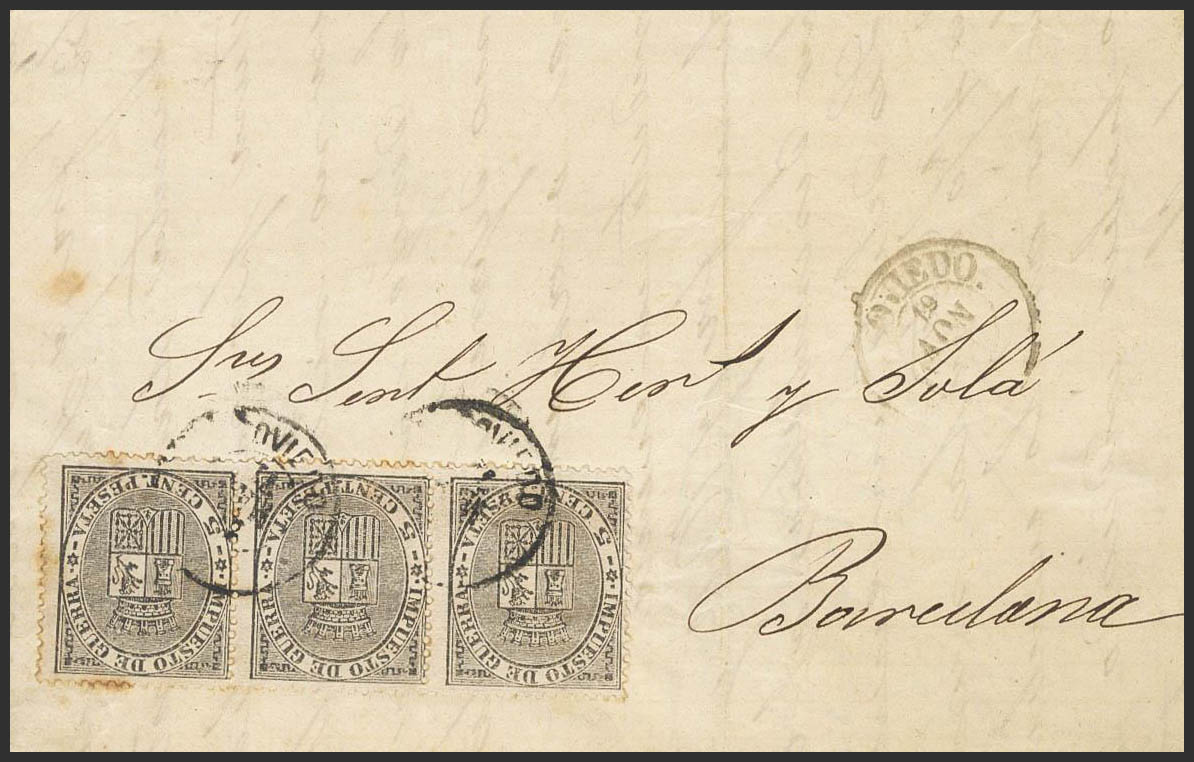 OVIEDO.
19
NOV
Sres Sent Herᵗ y Solá
Barcelona
OVIEDO
OVIEDO
IMPUESTO DE GUERRA
5 CENT. PESETA
IMPUESTO DE GUERRA
5 CENT. PESETA
IMPUESTO DE GUERRA
5 CE
ESETA